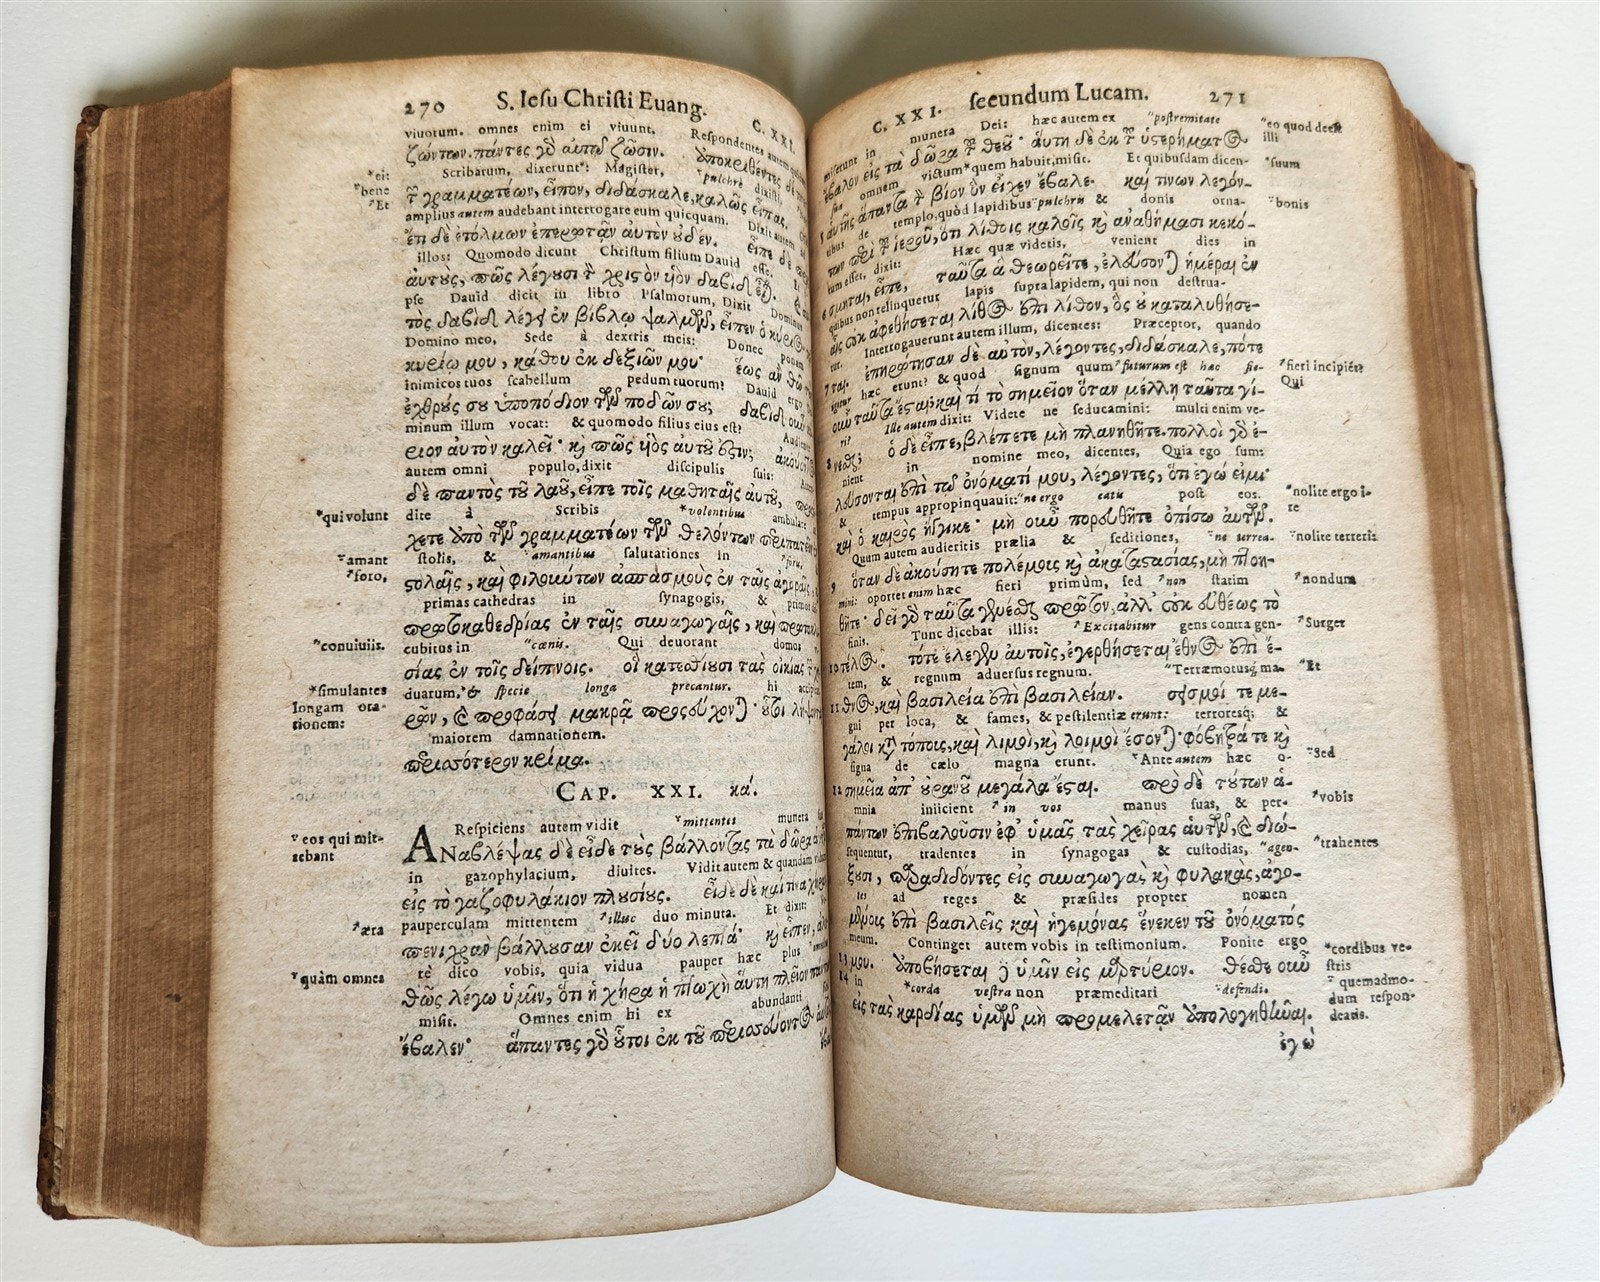 270 S. Iesu Christi Euang. C. XXI.
viuorum. omnes enim ei viuunt. Respondentes autem
ζώντων. πάντες γὸ αὐτῷ ζῶσιν. ὑποκριθέντες δέ
*eit Scribarum, dixerunt*: Magister, ˅pulchrè dixisti.
˅bene
˅Et τ̃ γραμματέων, εἶπον, διδάσκαλε, καλῶς εἶπας.
amplius autem audebant interrogare eum quicquam. Dixit autem
ἔτι δὲ ἐτόλμων ἐπερωτᾷν αὐτὸν ȣδέν. εἶπε δὲ
illos: Quomodo dicunt Christum filium Dauid esse.
αὐτȣς, πῶς λέγȣσι τ̃ χριστὸν ὑὸν δαβὶδ εἶ).
pse Dauid dicit in libro Psalmorum, Dixit Dominus
τὸς δαβὶδ λέγει ἐν βίβλῳ ψαλμῶν, εἶπεν ὁ κύριος
Domino meo, Sede à dextris meis: Donec ponam
κυρίῳ μου, κάθου ἐκ δεξιῶν μου· ἕως ἂν θῶ
inimicos tuos scabellum pedum tuorum? Dauid ergo
ἐχθρȣς σȣ ὑποπόδιον τῶν ποδῶν σȣ; δαβὶδ οὖν
minum illum vocat: & quomodo filius eius est?
ριον αὐτὸν καλεῖ· κὶ πῶς ὑὸς αὐτȣ ἐστιν;
autem omni populo, dixit discipulis suis:
δὲ παντὸς τȣ λαȣ, εἶπε τοῖς μαθηταῖς αὐτȣ,
*qui volunt dite à Scribis *volentibus ambulare
χετε ἀπὸ τῶν γραμματέων τῶν θελόντων περιπατεῖν
˅amant stolis, & ˅amantibus salutationes in ˅foro,
˅foro, στολαῖς, καὶ φιλούντων ἀσπασμοὺς ἐν ταῖς ἀγοραῖς,
primas cathedras in synagogis, &
πρωτοκαθεδρίας ἐν ταῖς συναγωγαῖς, καὶ
"conuiuiis. cubitus in "cœnis. Qui deuorant domos
σίας ἐν τοῖς δείπνοις. οἳ κατεσθίουσι τὰς οἰκίας τ̃
*simulantes duarum, *& specie longa precantur. hi
longam ora-
tionem: ρῶν, κὶ προφάσει μακρᾷ προσεύχον). ȣτοι
maiorem damnationem.
περισσότερον κρίμα.
CAP. XXI. κά.
Respiciens autem vidit ˅mittentes munera
˅eos qui mit-
tebant ΑΝαβλέψας δὲ εἶδε τοὺς βάλλοντας τὰ δῶρα
in gazophylacium, diuites. Vidit autem & quandam
εἰς τὸ γαζοφυλάκιον πλȣσίȣς. εἶδε δὲ καί τινα
˅æra pauperculam mittentem ˅illuc duo minuta. Et dixit:
πενιχρὰν βάλλȣσαν ἐκεῖ δύο λεπτά· κὶ εἶπεν,
˅quàm omnes rè dico vobis, quia vidua pauper hæc plus
θῶς λέγω ὑμῖν, ὅτι ἡ χήρα ἡ πτωχὴ αὕτη πλεῖον
misit. Omnes enim hi ex abundanti
ἔβαλεν· ἅπαντες γὸ ȣτοι ἐκ τȣ περισσεύοντος
C. XXI. secundum Lucam. 271
miserunt in munera Dei: hæc autem ex "postremitate "eo quod deest
illi
ἔβαλον εἰς τὰ δῶρα τ̃ θεȣ· αὕτη δὲ ἐκ τ̃ ὑστερήματος
sua omnem victum *quem habuit, misit. Et quibusdam dicen- *suum
αὐτῆς ἅπαντα τ̃ βίον ὃν εἶχεν ἔβαλε. καί τινων λεγόν-
5 tibus de templo, quòd lapidibus ˅pulchris & donis orna- ˅bonis
των περὶ τ̃ ἱερȣ, ὅτι λίθοις καλοῖς κὶ ἀναθήμασι κεκό-
tum esset, dixit: Hæc quæ videtis, venient dies in
6 σμηται, εἶπε, ταῦτα ἃ θεωρεῖτε, ἐλεύσον) ἡμέραι ἐν
quibus non relinquetur lapis supra lapidem, qui non destrua-
αἷς ȣκ ἀφεθήσεται λίθος ἐπὶ λίθον, ὃς ȣ καταλυθήσε-
tur. Interrogauerunt autem illum, dicentes: Præceptor, quando
7 ται. ἐπηρώτησαν δὲ αὐτὸν, λέγοντες, διδάσκαλε, πότε
igitur hæc erunt? & quod signum quum ˅futurum est hæc fie- ˅fieri incipiét?
Qui
οὖν ταῦτα ἔσται; καὶ τί τὸ σημεῖον ὅταν μέλλῃ ταῦτα γί-
ri? Ille autem dixit: Videte ne seducamini: multi enim ve-
8 νεσθαι; ὁ δὲ εἶπε, βλέπετε μὴ πλανηθῆτε. πολλοὶ γὸ ἐ-
nient in nomine meo, dicentes, Quia ego sum:
λεύσονται ἐπὶ τῷ ὀνόματί μου, λέγοντες, ὅτι ἐγώ εἰμι·
& tempus appropinquauit: "ne ergo eatis post eos. "nolite ergo i-
re
καὶ ὁ καιρὸς ἤγγικε· μὴ οὖν πορευθῆτε ὀπίσω αὐτῶν.
Quum autem audieritis prælia & seditiones, ˅ne terrea- ˅nolite terreri
9 ὅταν δὲ ἀκούσητε πολέμους κὶ ἀκαταστασίας, μὴ πτοη-
mini: oportet enim hæc fieri primùm, sed ˅non statim ˅nondum
θῆτε· δεῖ γὸ ταῦτα γενέσθαι πρῶτον, ἀλλ' ȣκ εὐθέως τὸ
finis. Tunc dicebat illis: ˅Excitabitur gens contra gen- ˅Surget
10 τέλος. τότε ἔλεγεν αὐτοῖς, ἐγερθήσεται ἔθνος ἐπὶ ἔ-
tem, & regnum aduersus regnum. "Terræmotusq; ma- "Et
11 θνος, καὶ βασιλεία ἐπὶ βασιλείαν. σεισμοί τε με-
gni per loca, & fames, & pestilentiæ erunt: terroresq; &
γάλοι κτ̃ τόπους, καὶ λιμοὶ, κὶ λοιμοὶ ἔσον)· φόβητρά τε κὶ
signa de cælo magna erunt. ˅Ante autem hæc o- ˅Sed
12 σημεῖα ἀπ' ȣρανȣ μεγάλα ἔσται. πρὸ δὲ τȣτων ἁ-
mnia iniicient ˅in vos manus suas, & per- ˅vobis
πάντων ἐπιβαλοῦσιν ἐφ' ὑμᾶς τὰς χεῖρας αὑτῶν, κὶ διώ-
sequentur, tradentes in synagogas & custodias, "agen- "trahentes
ξȣσι, παραδιδόντες εἰς συναγωγὰς κὶ φυλακὰς, ἀγο-
tes ad reges & præsides propter nomen
μένοις ἐπὶ βασιλεῖς καὶ ἡγεμόνας ἕνεκεν τȣ ὀνόματός
meum. Continget autem vobis in testimonium. Ponite ergo *cordibus ve-
stris
13 μου. ἀποβήσεται ϳ ὑμῖν εἰς μαρτύριον. θέσθε οὖν
14 in *corda vestra non præmeditari ˅defendi. ˅quemadmo-
dum respon-
deatis.
εἰς τὰς καρδίας ὑμῶν μὴ προμελετᾷν ἀπολογηθῆναι.
ἐγὼ